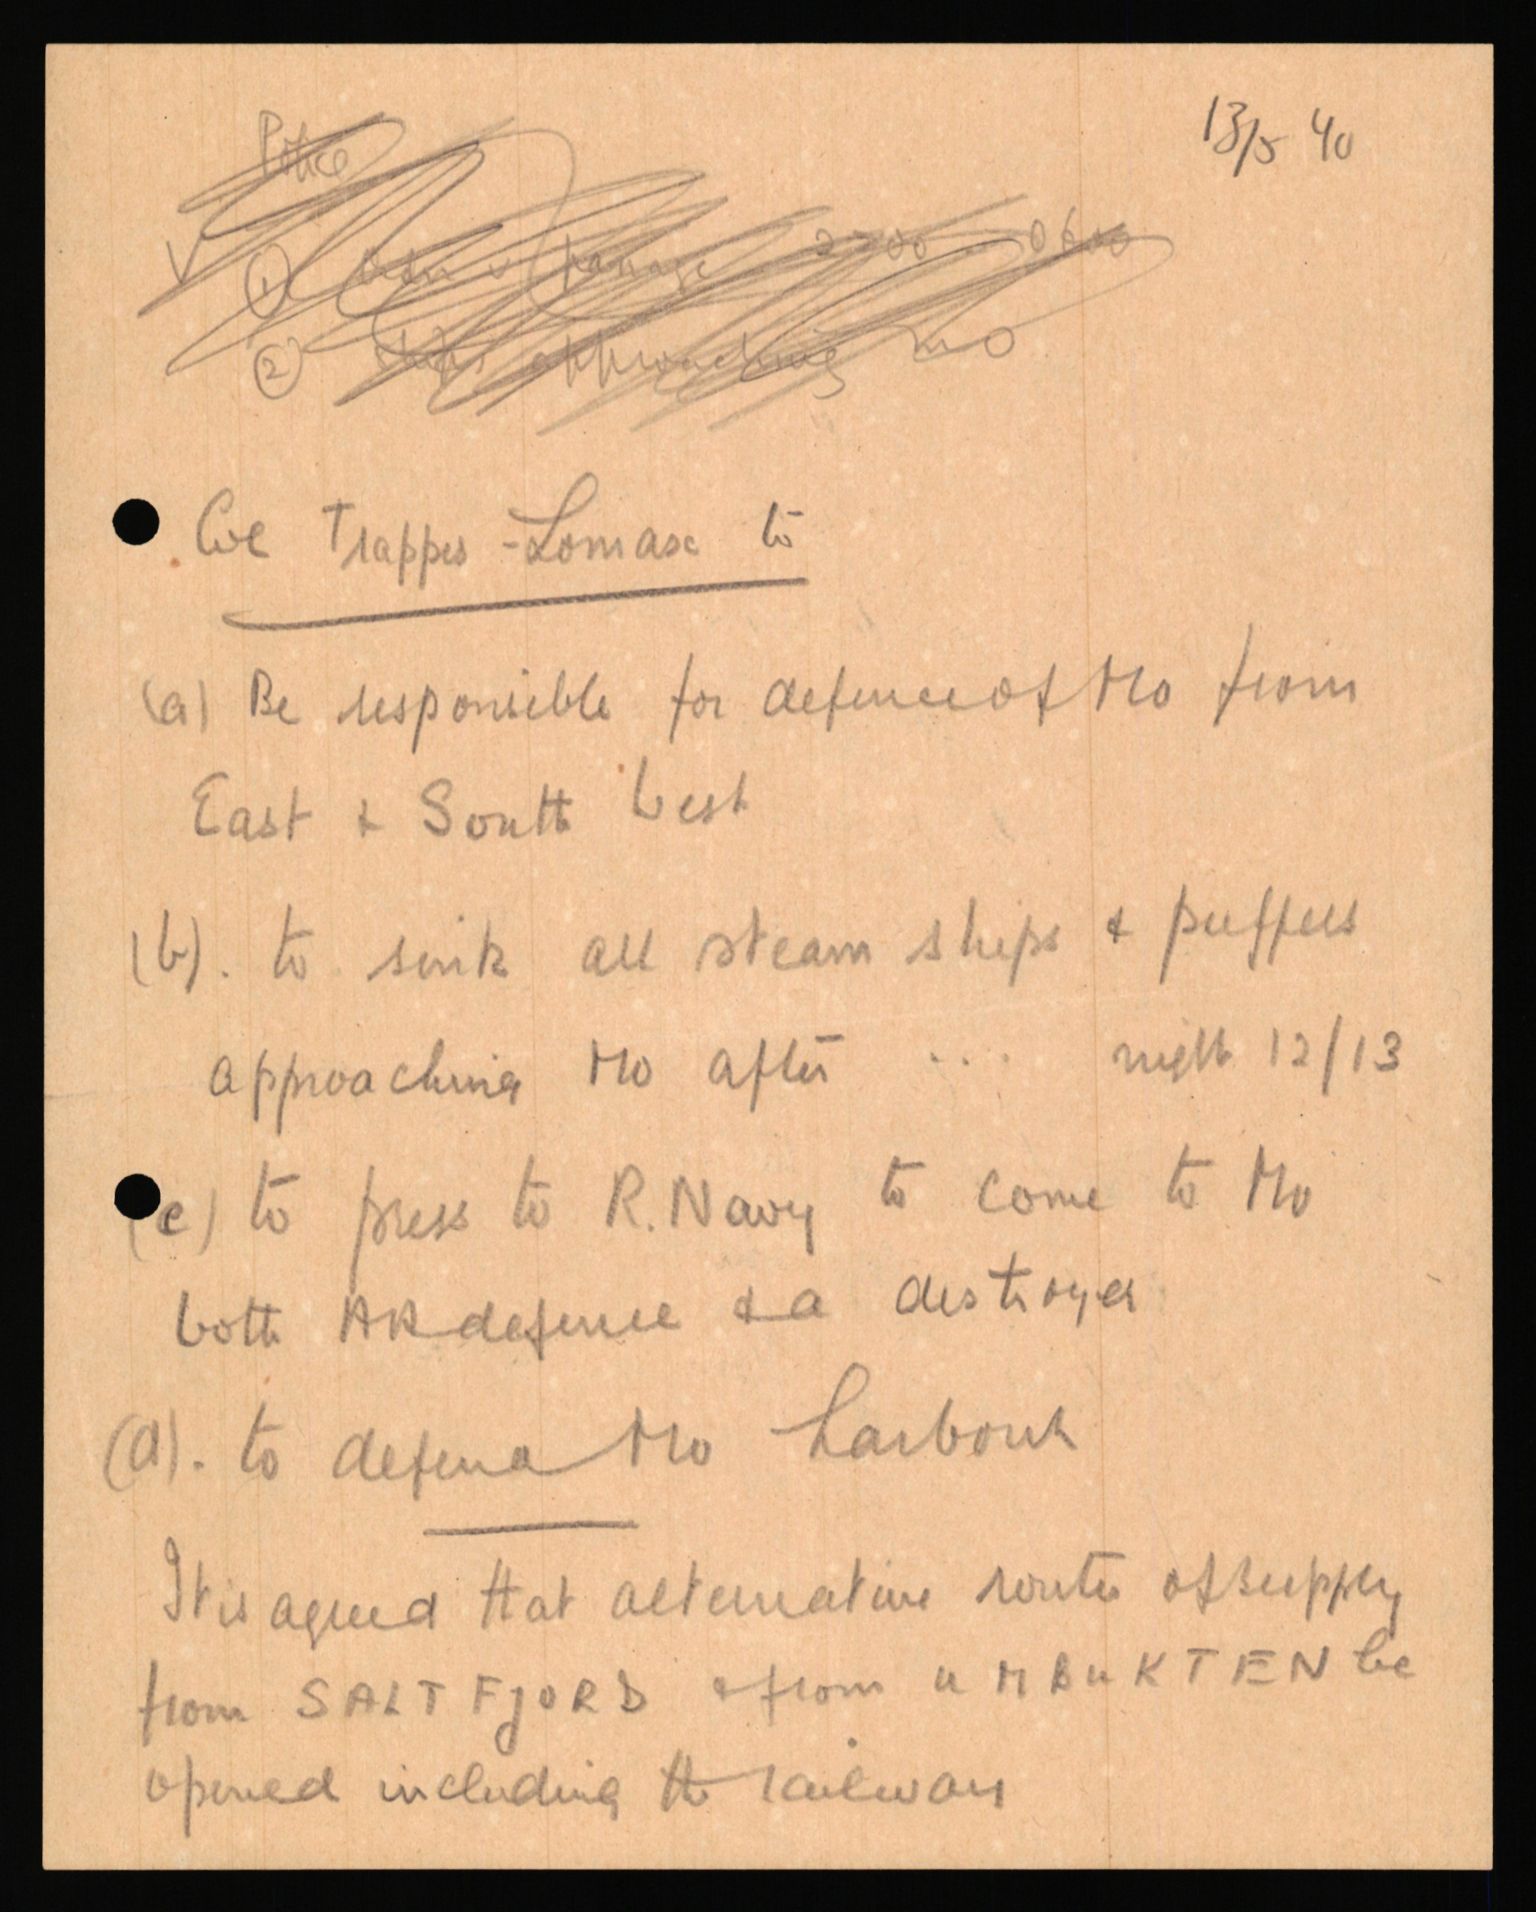 13/5 40
Police
(1)
2200 - 0600
(2) Ships approaching Mo
Col Trappes-Lomax to
(a) Be responsible for defence of Mo from
East & South West
(b). to sink all steam ships & puffers
approaching Mo after .... night 12/13
(c) to press to R. Navy to come to Mo
both AA defence & a destroyer
(d). to defend Mo harbour
It is agreed that alternative routes of supply
from SALTFJORD & from UMBUKTEN be
opened including the railway